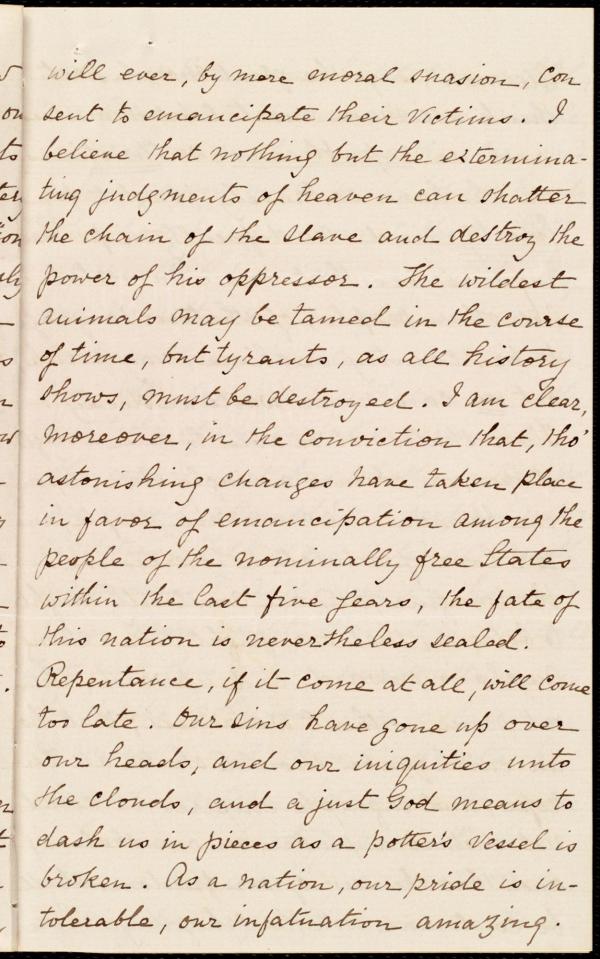 will ever, by mere moral suasion, con
sent to emancipate their victims. I
believe that nothing but the extermina-
ting judgments of heaven can shatter
the chain of the slave and destroy the
power of his oppressor. The wildest
animals may be tamed in the course
of time, but tyrants, as all history
shows, must be destroyed. I am clear,
moreover, in the conviction that, tho'
astonishing changes have taken place
in favor of emancipation among the
people of the nominally free States
within the last five years, the fate of
this nation is nevertheless sealed.
Repentance, if it come at all, will come
too late. Our sins have gone up over
our heads, and our iniquities unto
the clouds, and a just God means to
dash us in pieces as a potter's vessel is
broken. As a nation, our pride is in-
tolerable, our infatuation amazing.